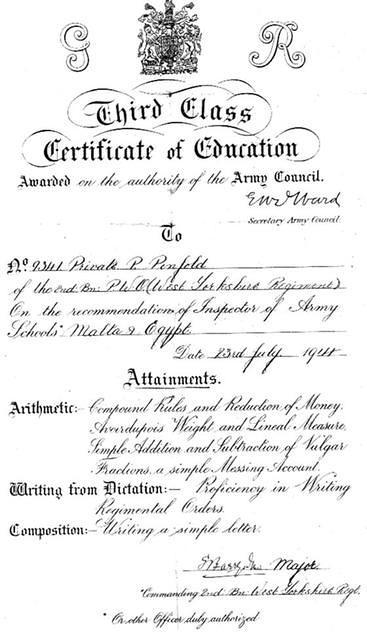 G R
Third Class
Certificate of Education
Awarded on the authority of the Army Council.
E W D Ward
Secretary Army Council
To
No. 9341 Private P. Penfold
of the 2nd Bn: P.W.O (West Yorkshire Regiment)
On the recommendation of Inspector of Army
Schools Malta & Egypt
Date 23rd July 19
Attainments.
Arithmetic:- Compound Rules and Reduction of Money.
Averdupois Weight and Lineal Measure,
Simple Addition and Subtraction of Vulgar
Fractions. a simple Messing Account.
Writing from Dictation:- Proficiency in Writing
Regimental Orders.
Composition:- Writing a simple letter.
Major.
*Commanding 2nd Bn: West Yorkshire Regt.
* Or other Officer duly authorized